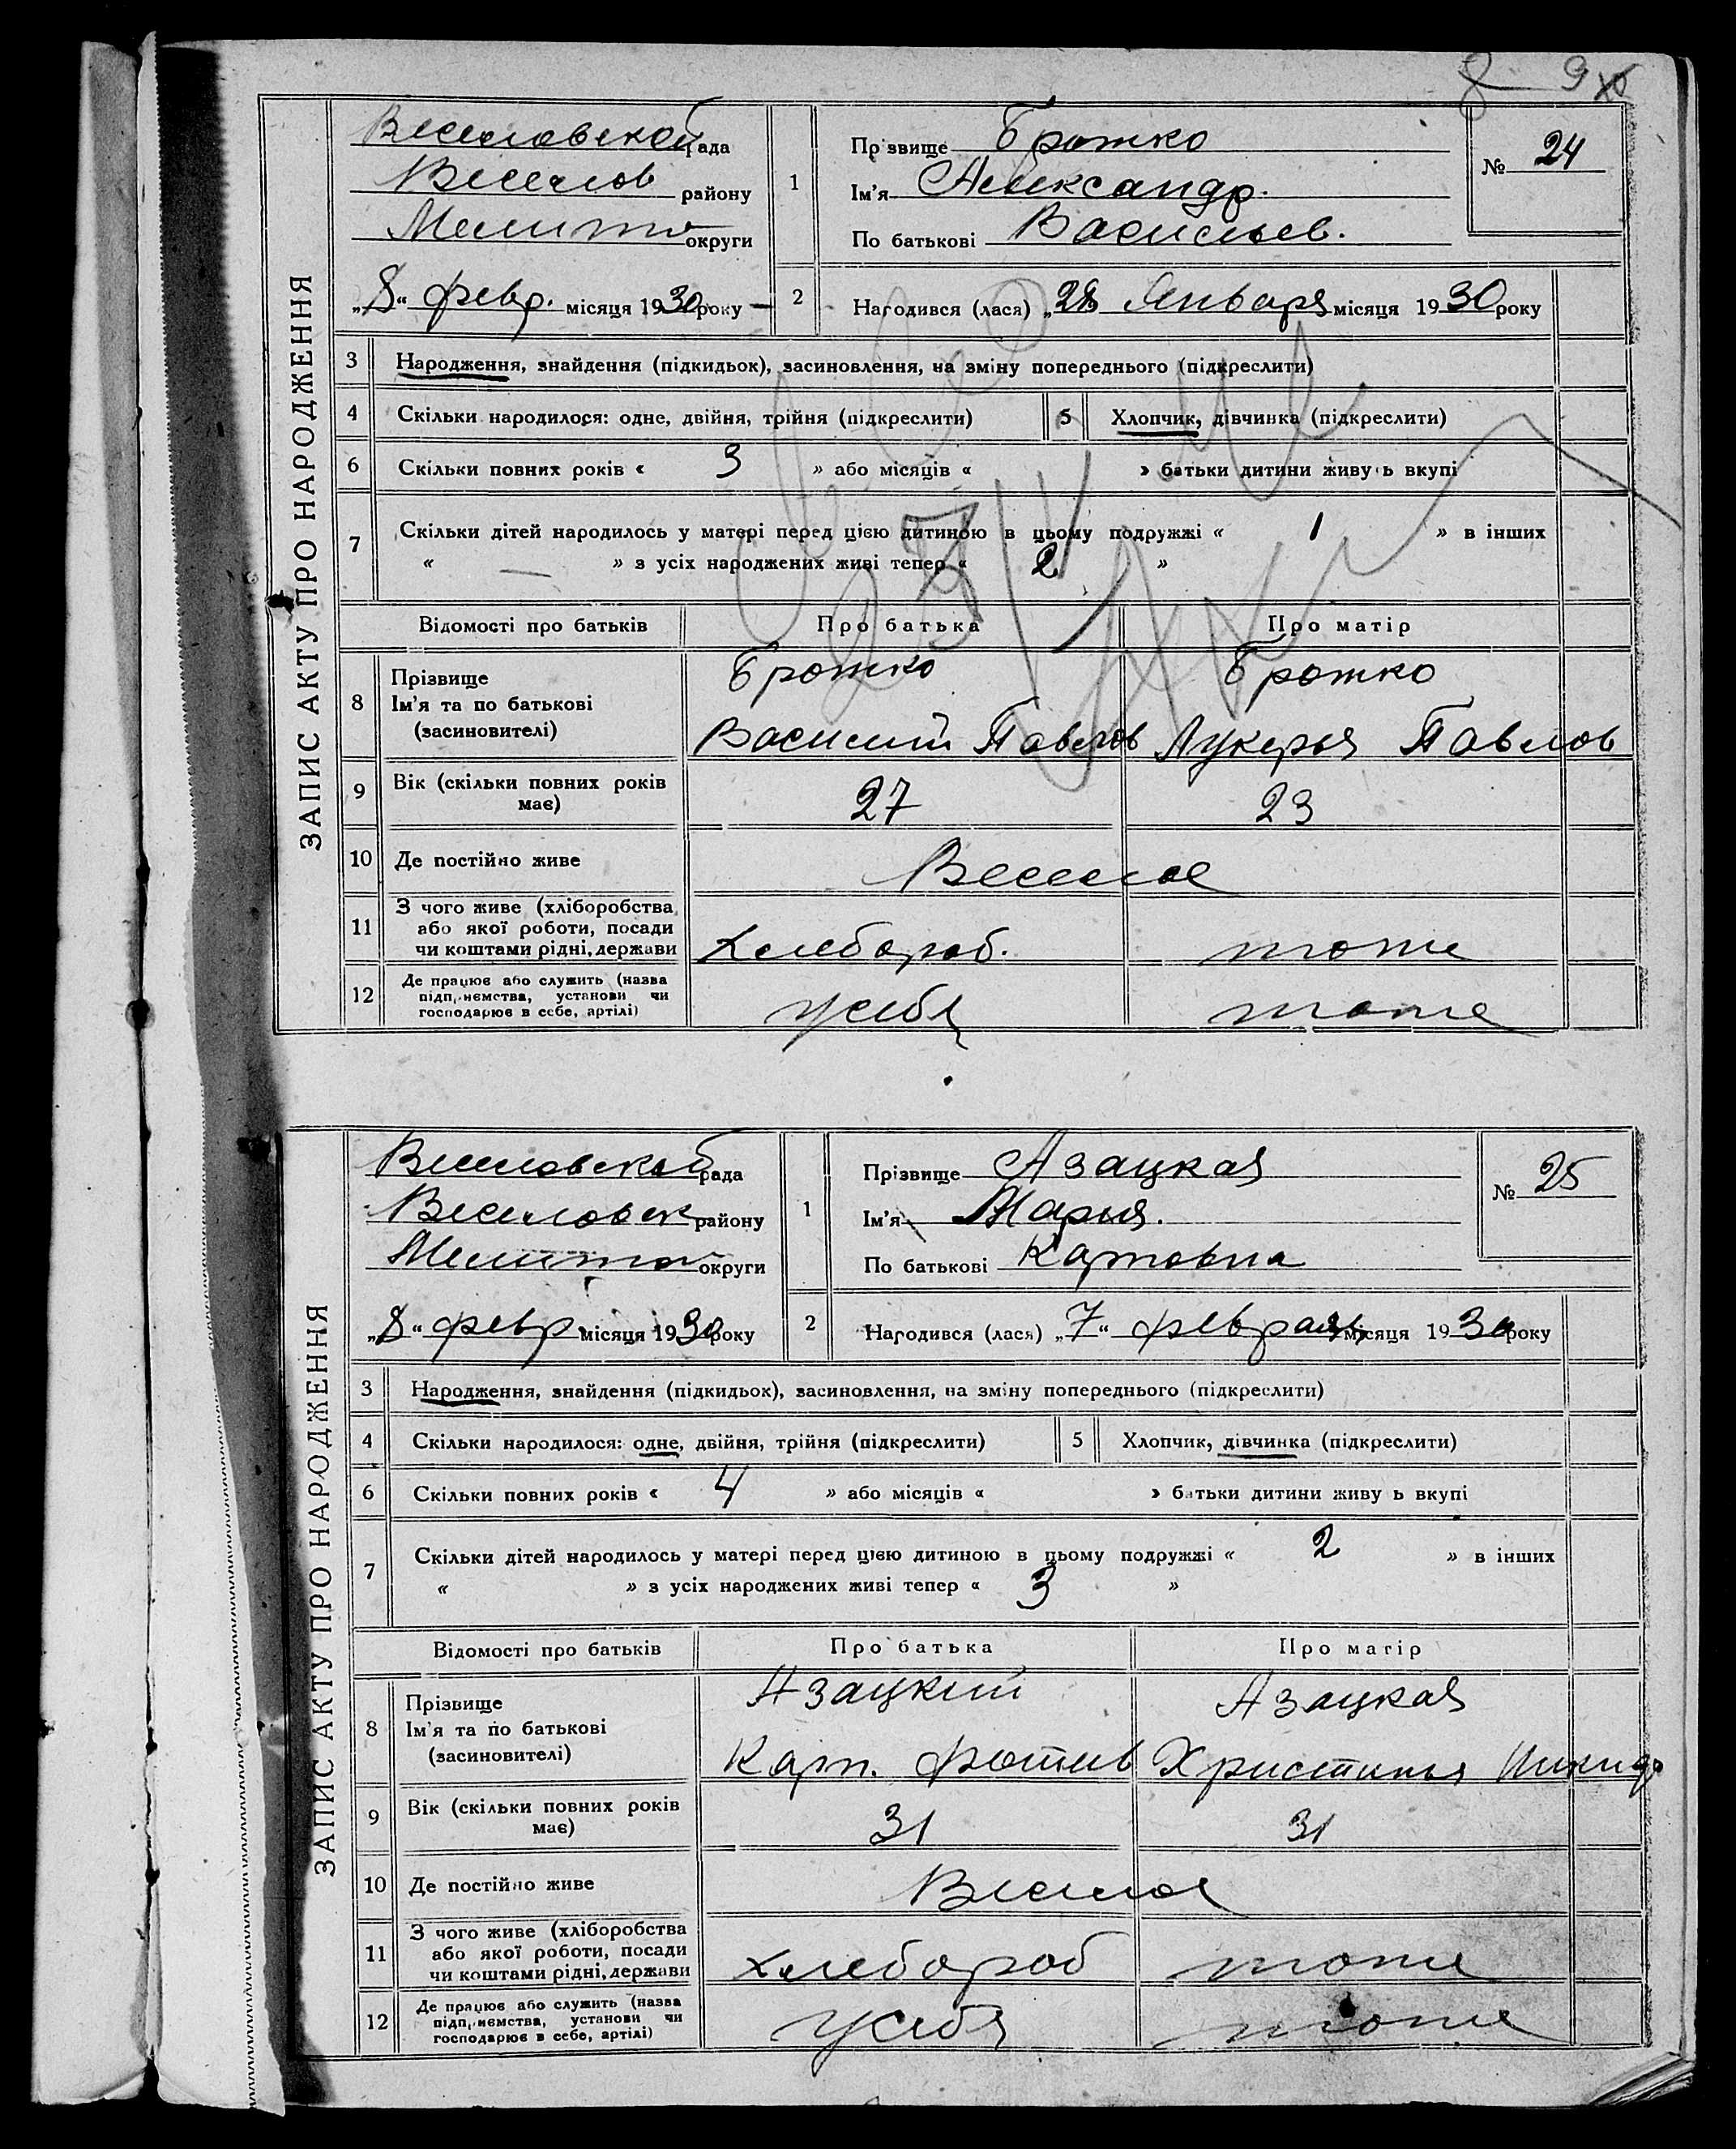 8 9
ЗАПИС АКТУ ПРО НАРОДЖЕННЯ
Веселовской рада
Веселов району
Мелито округи
„8“ февр. місяця 1930 року
1
Прізвище Брожко
Ім'я Александр.
По батькові Васильев.
№ 24
2 Народився (лася) „28 Января місяця 1930 року
3 Народження, знайдення (підкидьок), засиновлення, на зміну попереднього (підкреслити)
4 Скільки народилося: одне, двійня, трійня (підкреслити) 5 Хлопчик, дівчинка (підкреслити)
6 Скільки повних років « 3 » або місяців « » батьки дитини живуть вкупі
7 Скільки дітей народилось у матері перед цією дитиною в цьому подружжі « 1 » в інших
« — » з усіх народжених живі тепер « 2 »
Відомості про батьків Про батька Про матір
8 Прізвище
Ім'я та по батькові
(засиновителі)
Брожко Брожко
Василий Павлов Лукерья Павлов
9 Вік (скільки повних років
має)
27 23
10 Де постійно живе Веселое
11 З чого живе (хліборобства,
або якої роботи, посади
чи коштами рідні, держави
Хлебороб. тоже
12 Де працює або служить (назва
підприємства, установи чи
господарює в себе, артілі)
у себя тоже
ЗАПИС АКТУ ПРО НАРОДЖЕННЯ
Веселовской рада
Веселовск району
Мелито округи
„8“ февр місяця 1930 року
1
Прізвище Азацкая
Ім'я Марья.
По батькові Карповна
№ 25
2 Народився (лася) „7“ февраля місяця 1930 року
3 Народження, знайдення (підкидьок), засиновлення, на зміну попереднього (підкреслити)
4 Скільки народилося: одне, двійня, трійня (підкреслити) 5 Хлопчик, дівчинка (підкреслити)
6 Скільки повних років « 4 » або місяців « » батьки дитини живу ь вкупі
7 Скільки дітей народилось у матері перед цією дитиною в цьому подружжі « 2 » в інших
« » з усіх народжених живі тепер « 3 »
Відомості про батьків Про батька Про матір
8 Прізвище
Ім'я та по батькові
(засиновителі)
Азацкий Азацкая
Карп. Фотиев Христинья Никид
9 Вік (скільки повних років
має)
31 31
10 Де постійно живе Веселое
11 З чого живе (хліборобства
або якої роботи, посади
чи коштами рідні, держави
хлебороб тоже
12 Де працює або служить (назва
підприємства, установи чи
господарює в себе, артілі)
у себя тоже